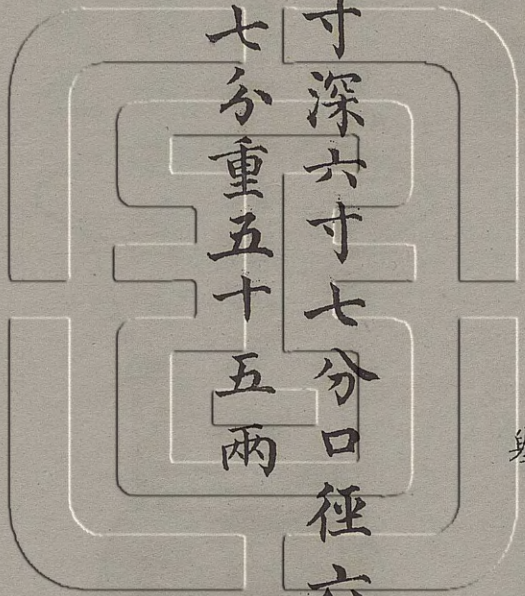 寸深六寸七分口徑六
七分重五十五兩